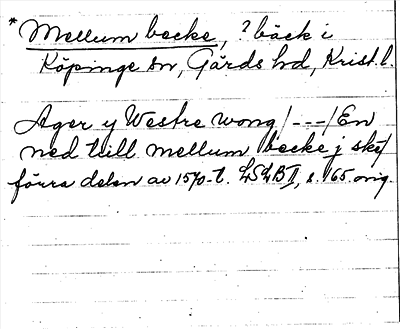 * Mellum becke, ? bäck i
Köpinge sn, Gärds hd, Krist. l.
Ager y Westre wong /---/ En
ned till mellum becke j sket
förra delen av 1570-t. LSLB II, s. 165 orig.